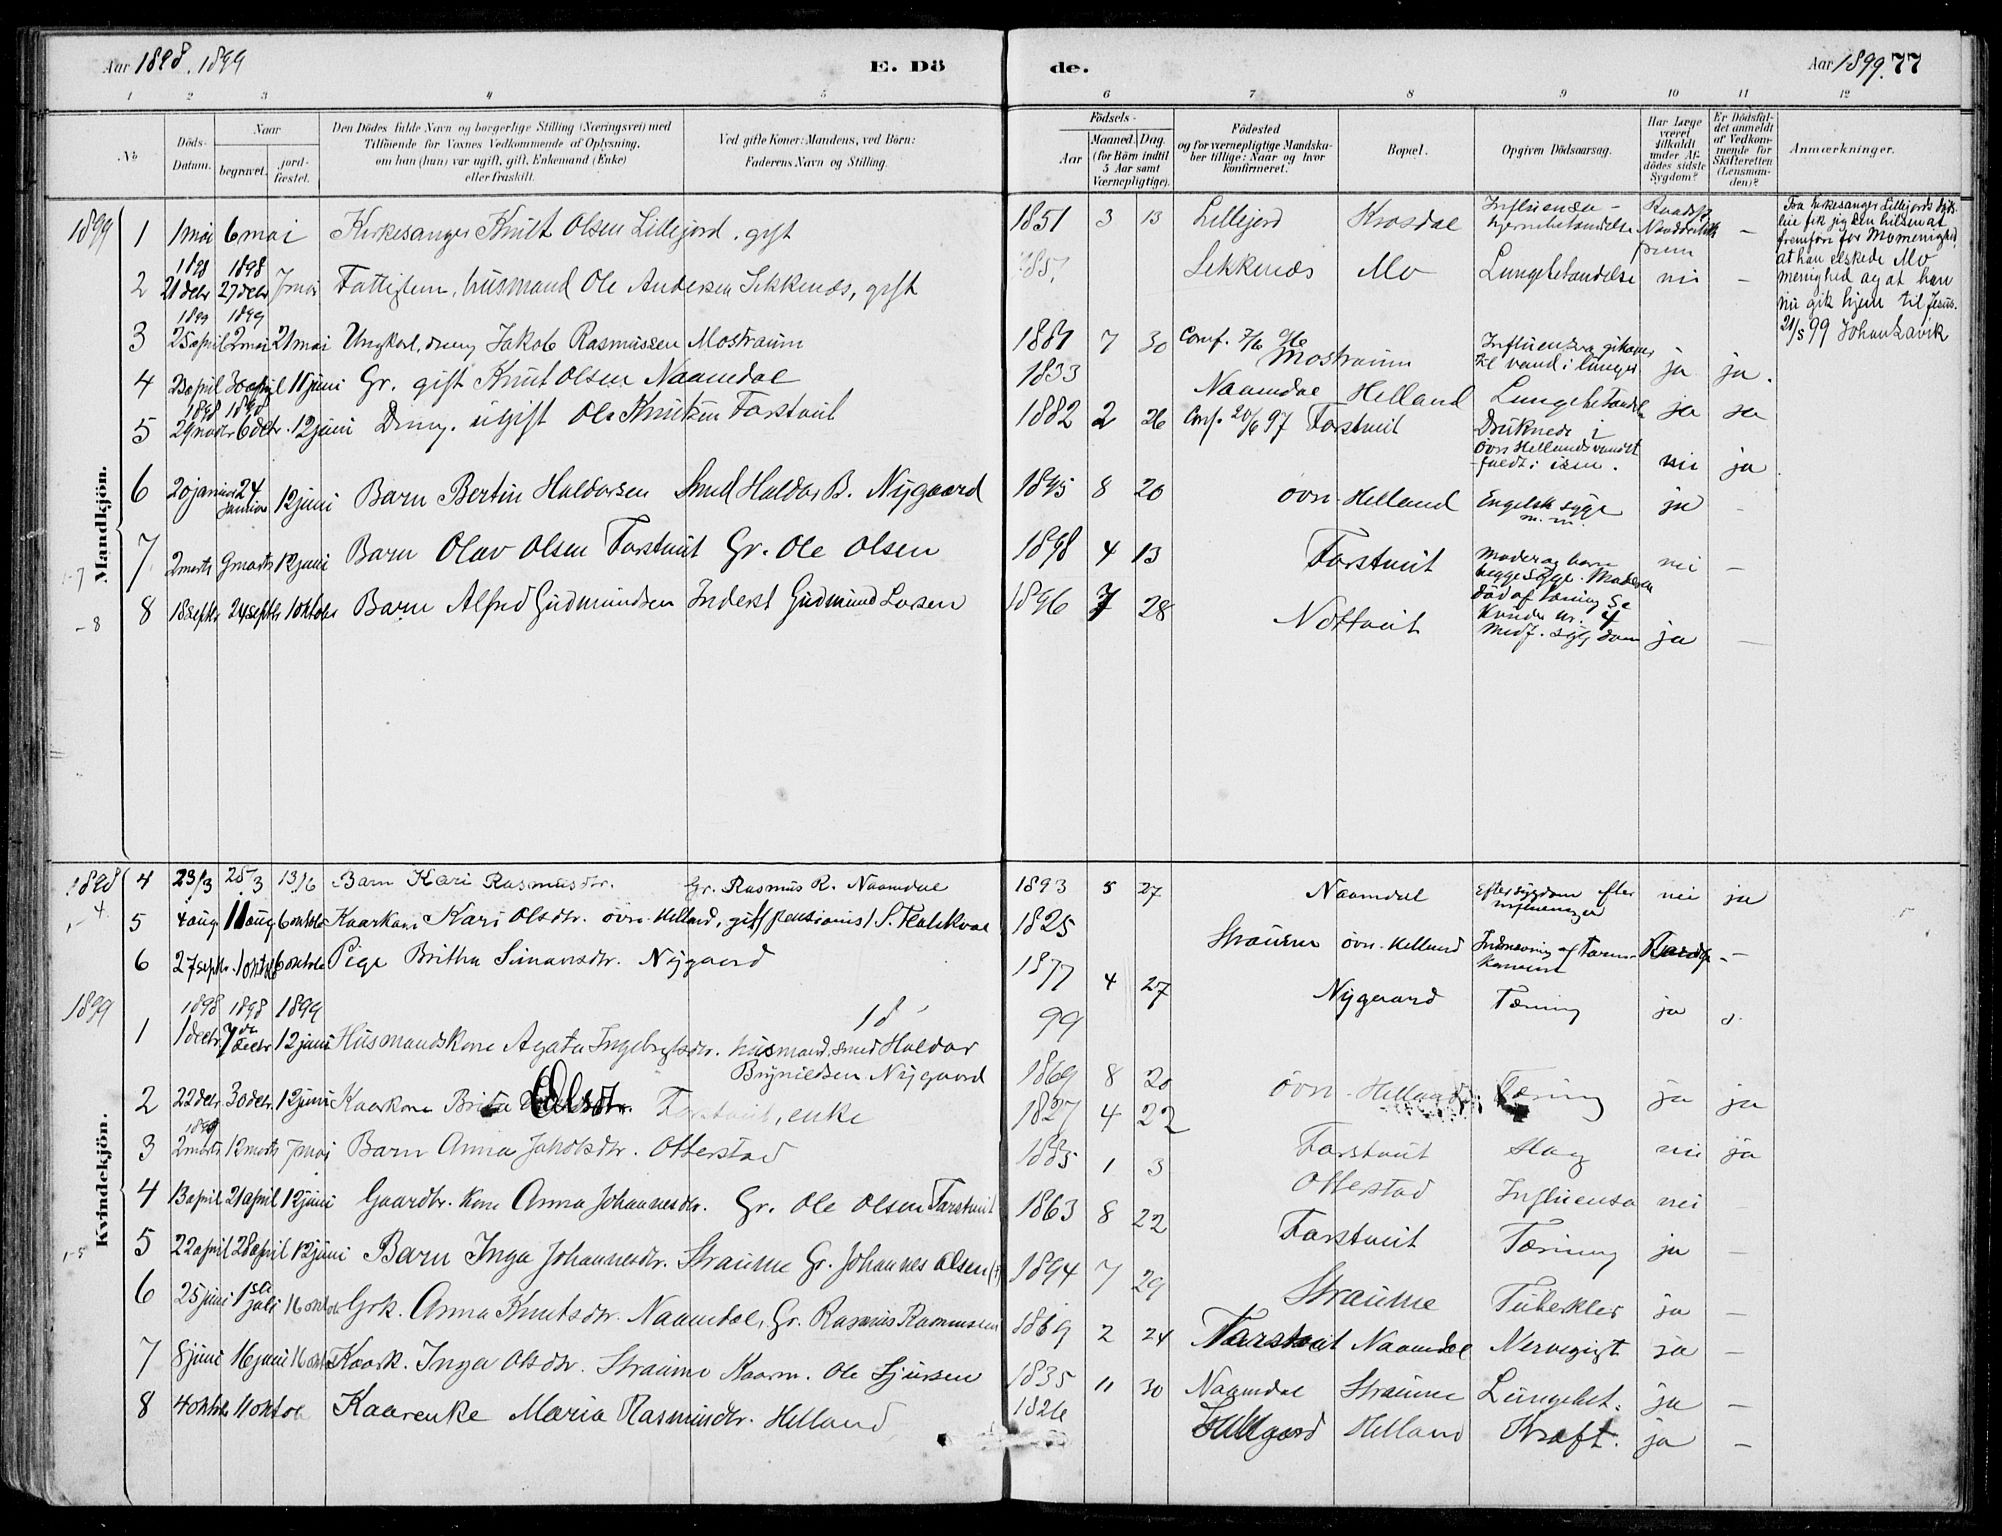 Aar 1898. 1899 E. Dö de. Aar 1899. 77
1 2 3 4 5 6 7 8 9 10 11 12
No Döds-Datum. Naar begravet. jordfæstet. Den Dödes fulde Navn og borgerlige Stilling (Næringsvei) med Tilföiende for Voxnes Vedkommende af Oplysning, om han (hun) var ugift, gift, Enkemand (Enke) eller fraskilt. Ved gifte Koner: Mandens, ved Börn: Faderens Navn og Stilling. Födsels- Aar Maaned. Dag. (for Börn indtil 5 Aar samt Værnepligtige). Födested og for værnepligtige Mandskaber tillige: Naar og hvor konfirmeret. Bopæl. Opgiven Dödsaarsag. Har Læge været tilkaldt under Afdödes sidste Sygdom? Er Dödsfaldet anmeldt af Vedkommende for Skifteretten (Lensmanden)? Anmærkninger.
Mandkjön.
1899 1 1 mai 6 mai Kirkesanger Knut Olsen Lillejord. gift 1851 3 13 Lillejord Krosdal Influensa- hjernebetændelse —
Fra kirkesanger Lillejords
fik jeg den hilsen at
fremföre for Mo menighed,
at han elskede Mo
menighed og at han
nu gik hjem til Jesus.
21/5 99 Johan Lavik
2 1898 21 decbr 1898 27 decbr 7 mai Fattiglem, husmand Ole Andersen Sekkenæs, gift Sekkenæs Mo Lungebetændelse nei —
3 1899 25 april 1899 2 mai 21 mai Ungkarl, dreng Jakob Rasmussen Mostraum 1881 7 30 Conf. Mostraum Influensa til vand i lunger ja ja.
4 23 april 30 april 11 juni Gr. gift Knut Olsen Naamdal 1833 Naamdal Helland Lungebetændelse ja ja
5 1898 29 novbr 1898 6 decbr. 12 juni Dreng. ugift Ole Knutsen Farstveit 1882 2 26 Conf. 20/6 97 Farstveit Druknede i övr. Hellandsvandet faldt i isen. nei ja
6 20 januar 24 januar 12 juni Barn Bertin Haldorsen Smed Haldor B. Nygaard 1895 8 20 övr. Helland Engelsk syge m.m. ja -
7 2 marts 9 marts 12 juni Barn Olav Olsen Farstveit Gr. Ole Olsen 1898 4 13 Farstveit Moder og barn begge syge. Moderen död af tæring Se Kvinder nr. 4 nei —
1-7
8 18 septbr 24 septbr 1 oktober Barn Alfred Gudmundsen Inderst Gudmund Larsen 1896 7 28 Nottveit Medf. sygdom ja —
- 8
Kvindekjön.
1898 4 23/3 28/3 13/6 Barn Kari Rasmusdtr. Gr. Rasmus R. Naamdal 1893 5 27 Naamdal Eftersygdom efter influenza nei ja
1-4
5 4 aug. 11 aug 6 oktobr Kaarkone Kari Olsdtr. övr. Helland, gift pensionist S. 1825 Straume övr. Helland —
6 27 septbr. 1 oktbr 6 oktober Pige Britha Simonsdtr. Nygaard 1877 4 27 Nygaard Tæring ja
1899 1898 1898 1899 18 99
1 1 decbr. 7 de decbr 12 juni Husmandskone Agata Ingebrigtsdtr. husmand, smed Haldor Brynildsen Nygaard 1869 8 20 övr. Helland Tæring ja ja
2 22 decbr 30 decbr. 12 juni Kaarkone Brita Olsdtr. Farstveit, enke 1827 4 22 Farstveit Slag nei ja
3 1899 2 marts 12 marts 7 mai Barn Anna Jakobsdtr. Otterstad 1885 1 3 Otterstad Influensa nei
4 13 april 21 april 12 juni Gaardbr. kone Anna Johannesdtr. Gr. Ole Olsen Farstveit 1863 8 22 Farstveit Tæring ja —
5 22 april 28 april 12 juni Barn Inga Johannesdtr. Straume Gr. Johannes Olsen 1894 7 29 Straume Tuberkler ja —
1-5
6 25 juni 1ste juli 16 oktobr Grk. Anna Knutsdtr. Naamdal, Gr. Rasmus Rasmussen 1869 2 24 Farstveit Naamdal Nervegigt ja —
7 8 juni 16 juni 16 oktbr Kaark. Inga Olsdtr. Straume Kaarm. Ole Sjursen 1835 11 30 Naamdal Straume Lungebet. ja —
8 4 oktbr 11 oktob Kaarenke Maria Rasmusdtr. Helland 1826 Helland Kræft. ja —